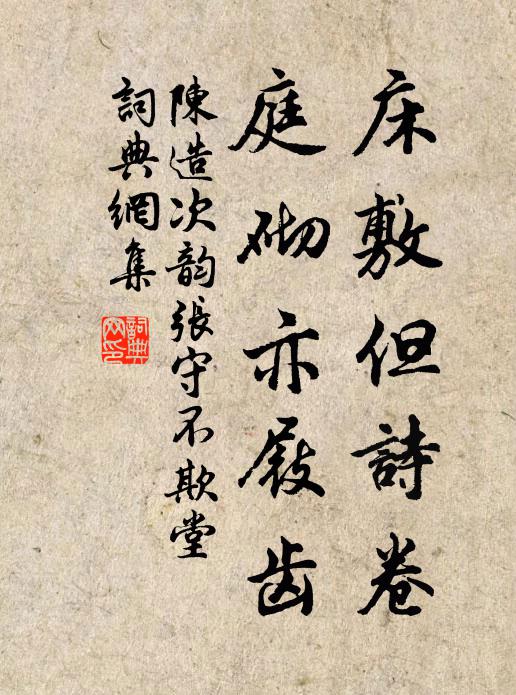 床敷但詩卷
庭砌亦屐齿
陳造次韵張守不欺堂
詞典網集
詞典网印